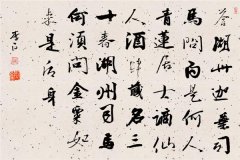 答湖州迦葉司
馬問白是何人
青蓮居士謫仙
人酒肆藏名三
十春湖州司馬
何須問金粟如
來是後身